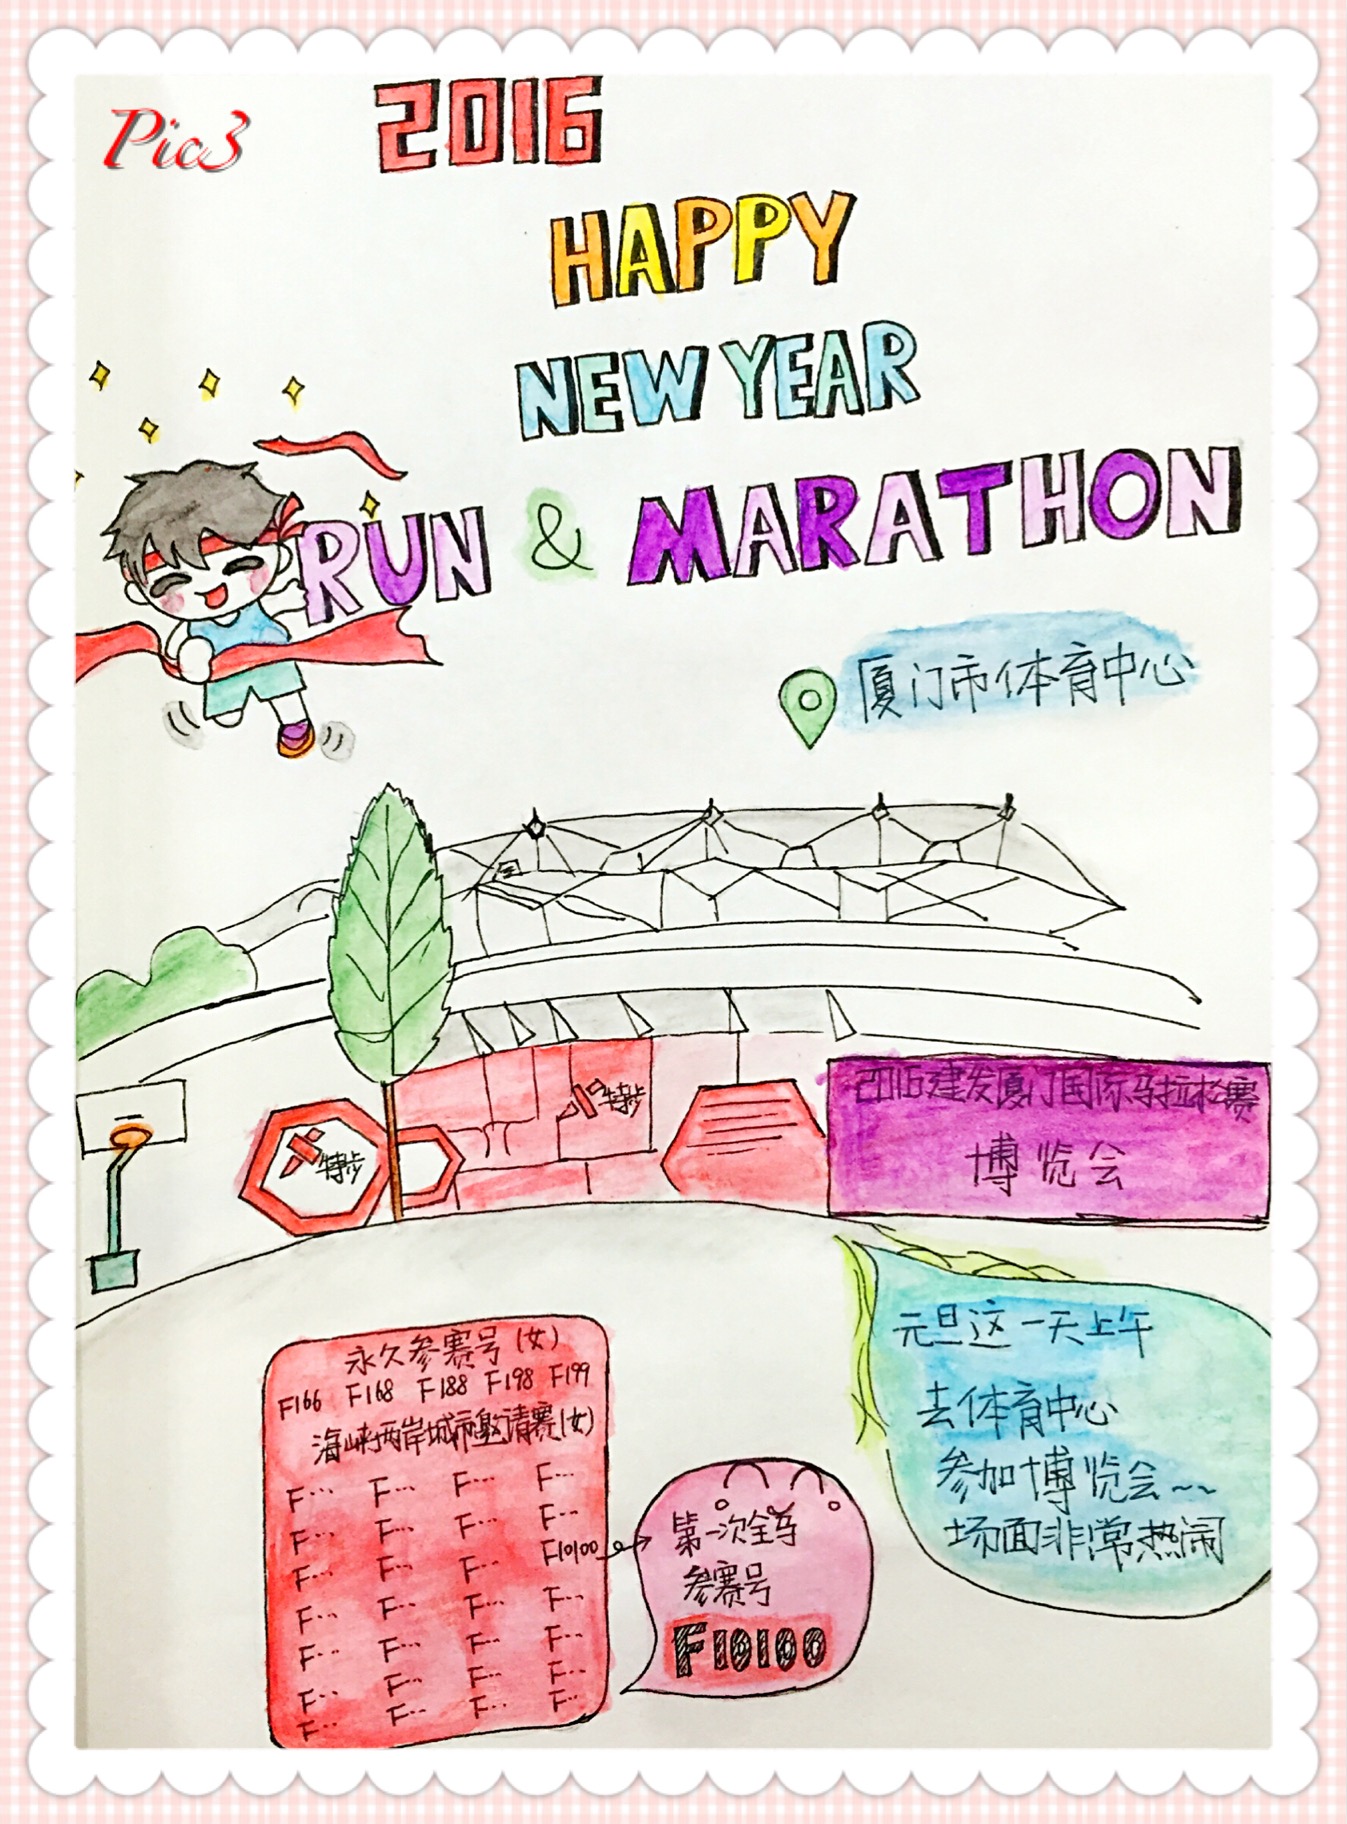 Pic3
2016
HAPPY
NEW YEAR
RUN & MARATHON
厦门市体育中心
特步
特步
2016建发厦门国际马拉松赛
博览会
元旦这一天上午
去体育中心
参加博览会~~
场面非常热闹
永久参赛号(女)
F166 F168 F188 F198 F199
海峡两岸城市邀请赛(女)
F… F… F… F…
F… F… F… F…
F… F… F… F10100
F… F… F… F…
F… F… F… F…
F… F… F… F…
F… F… F… F…
第一次全马
参赛号
F10100